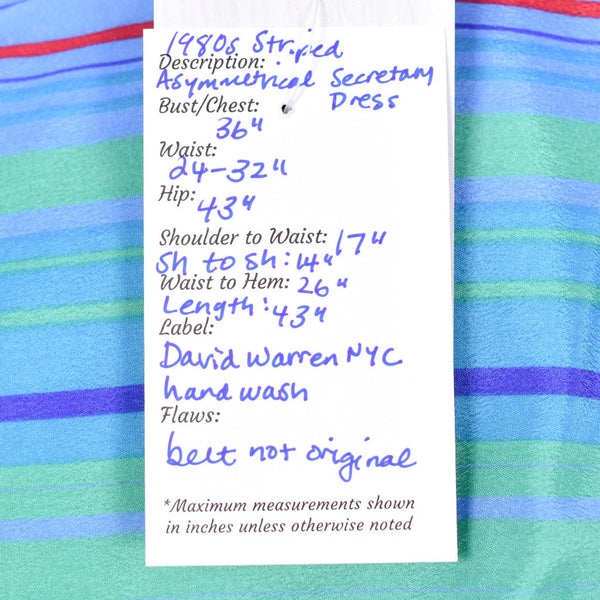 1980s Striped
Description:
Asymmetrical Secretary
Bust/Chest: Dress
36"
Waist:
24-32"
Hip: 43"
Shoulder to Waist: 17"
Sh to sh: 14"
Waist to Hem: 26"
Length: 43"
Label:
David Warren NYC
hand wash
Flaws:
belt not original
*Maximum measurements shown
in inches unless otherwise noted